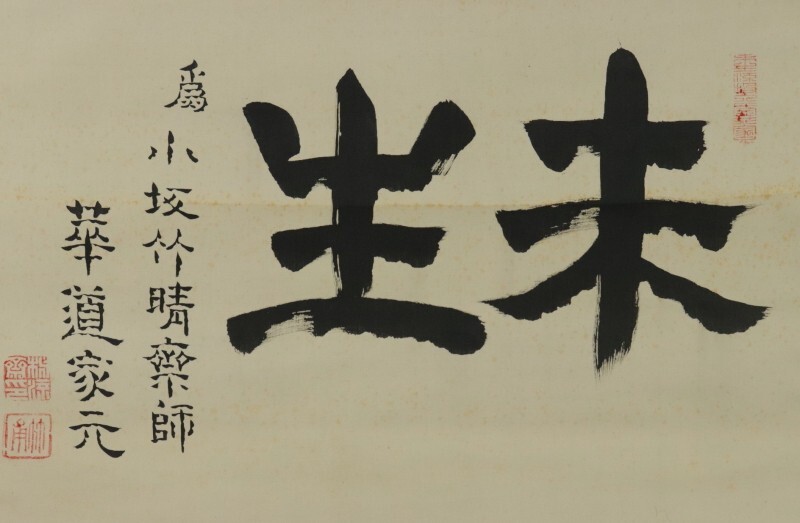 未生
爲小坂竹晴齋師
華道家元